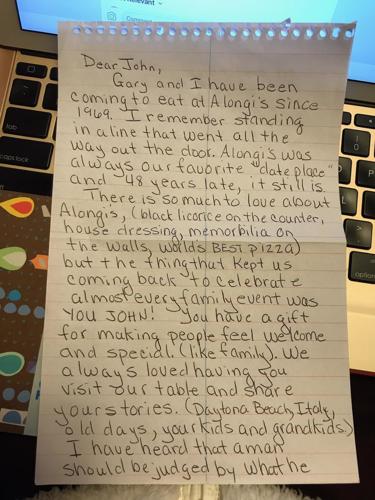 Relevant
Dear John,
Gary and I have been
coming to eat at Alongi's since
1969. I remember standing
in a line that went all the
way out the door. Alongi's was
always our favorite "date place"
and 48 years late, it still is.
There is so much to love about
Alongi's, (black licorice on the counter,
house dressing, memorbilia on
the walls, world's BEST pizza)
but the thing that kept us
coming back to celebrate
almost every family event was
YOU JOHN! You have a gift
for making people feel welcome
and special. (like family). We
always loved having you
visit our table and share
your stories. (Daytona Beach, Italy,
old days, your kids and grandkids.)
I have heard that a man
should be judged by what he
tab
caps lock
option